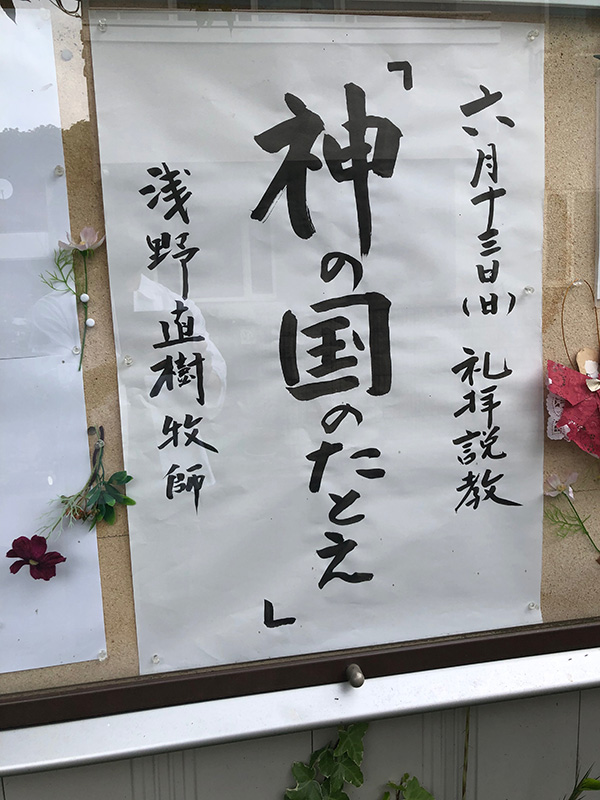 六月十三日(日) 礼拝説教
「神の国のたとえ」
浅野直樹牧師